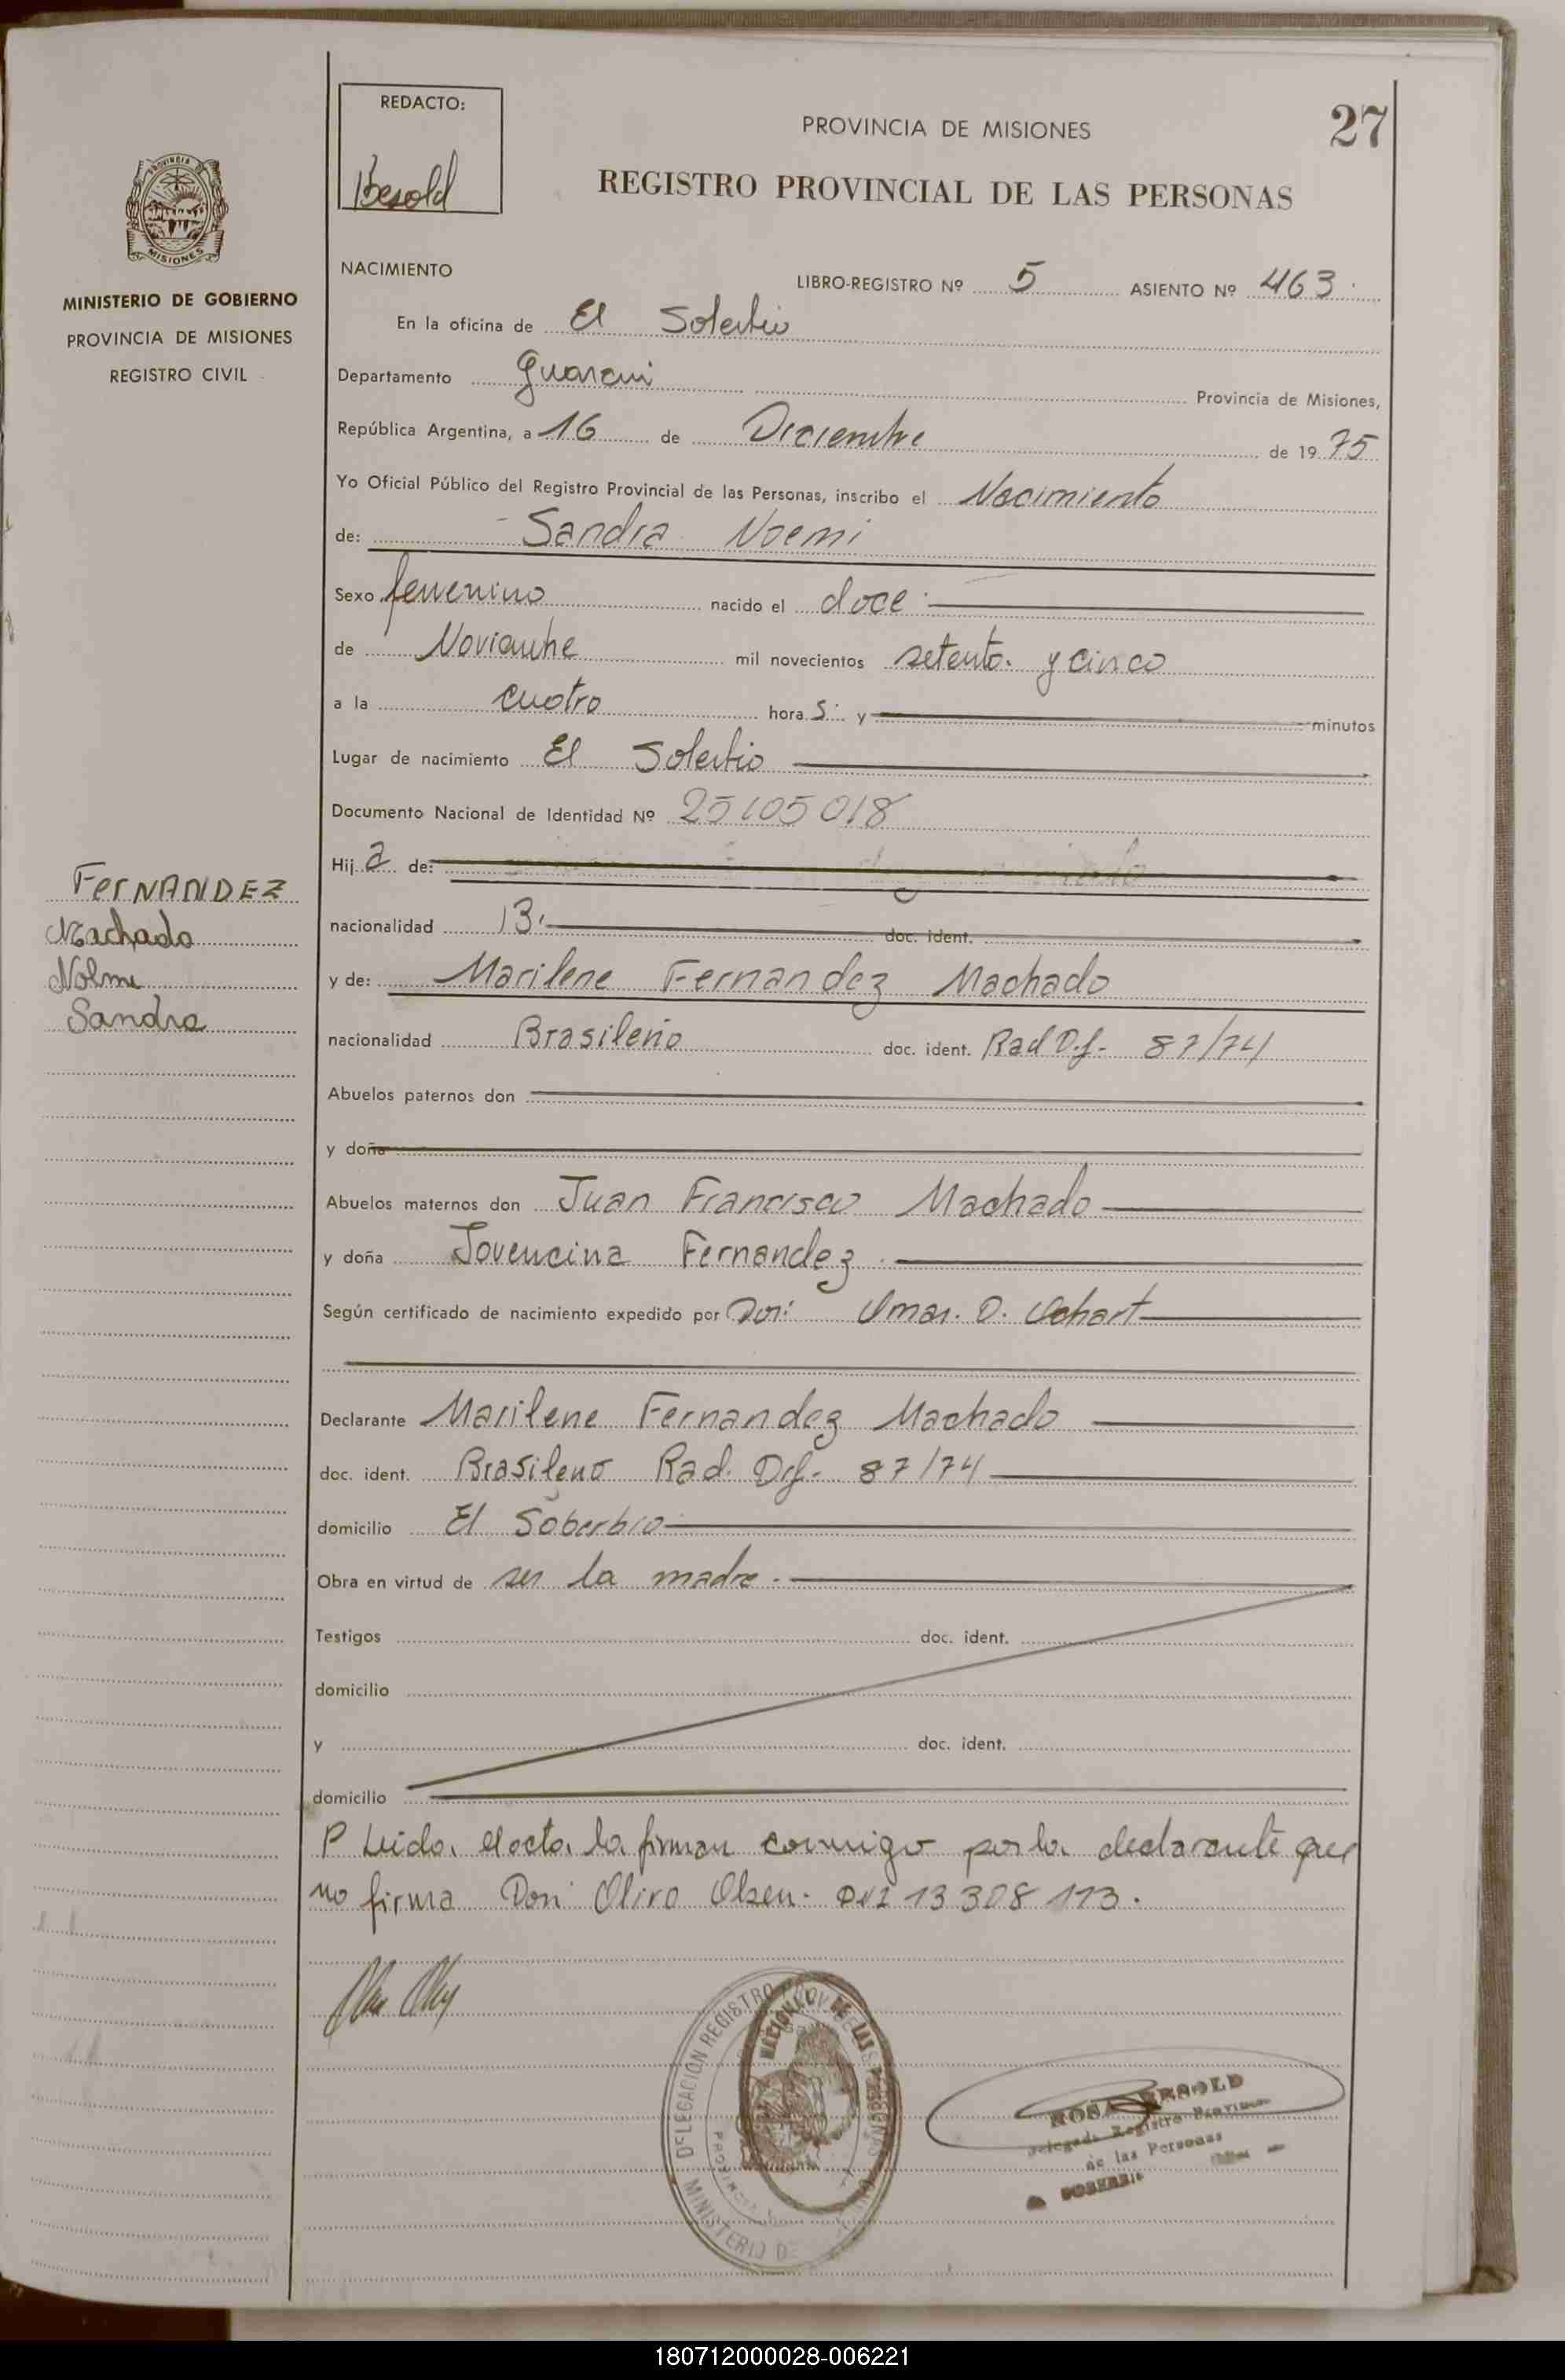 REDACTO:
Besold
PROVINCIA DE MISIONES
27
REGISTRO PROVINCIAL DE LAS PERSONAS
PROVINCIA
MISIONES
MINISTERIO DE GOBIERNO
PROVINCIA DE MISIONES
REGISTRO CIVIL
NACIMIENTO
LIBRO-REGISTRO Nº 5 ASIENTO Nº 463.
En la oficina de El Soberbio
Departamento Guarani Provincia de Misiones,
República Argentina, a 16 de Diciembre de 1975
Yo Oficial Público del Registro Provincial de las Personas, inscribo el Nacimiento
de: Sandra Noemi
Sexo femenino nacido el doce
de Noviembre mil novecientos setenta y cinco
a la cuatro hora s y minutos
Lugar de nacimiento El Soberbio
Documento Nacional de Identidad Nº 25105018
Hij a de:
nacionalidad doc. ident.
y de: Marilene Fernandez Machado
nacionalidad Brasileño doc. ident. Rad Df. 87/74
Abuelos paternos don
y doña
Abuelos maternos don Juan Francisco Machado
y doña Jovencina Fernandez
Según certificado de nacimiento expedido por Don: Omar. D.
Declarante Marilene Fernandez Machado
doc. ident. Brasileño Rad. Df. 87/74
domicilio El Soberbio
Obra en virtud de ser la madre.
Testigos doc. ident.
domicilio
y doc. ident.
domicilio
FerNANDEZ
Machado
Sandra
Leida el acta la firman conmigo por la declarante que
no firma Don Oliro Olsen. DNI 13308113.
DELEGACION REGISTRO PROV. DE LAS PERSONAS
MINISTERIO DE
ROSA BESOLD
Delegada Registro Provincial
de las Personas
SOBERBIO
180712000028-006221